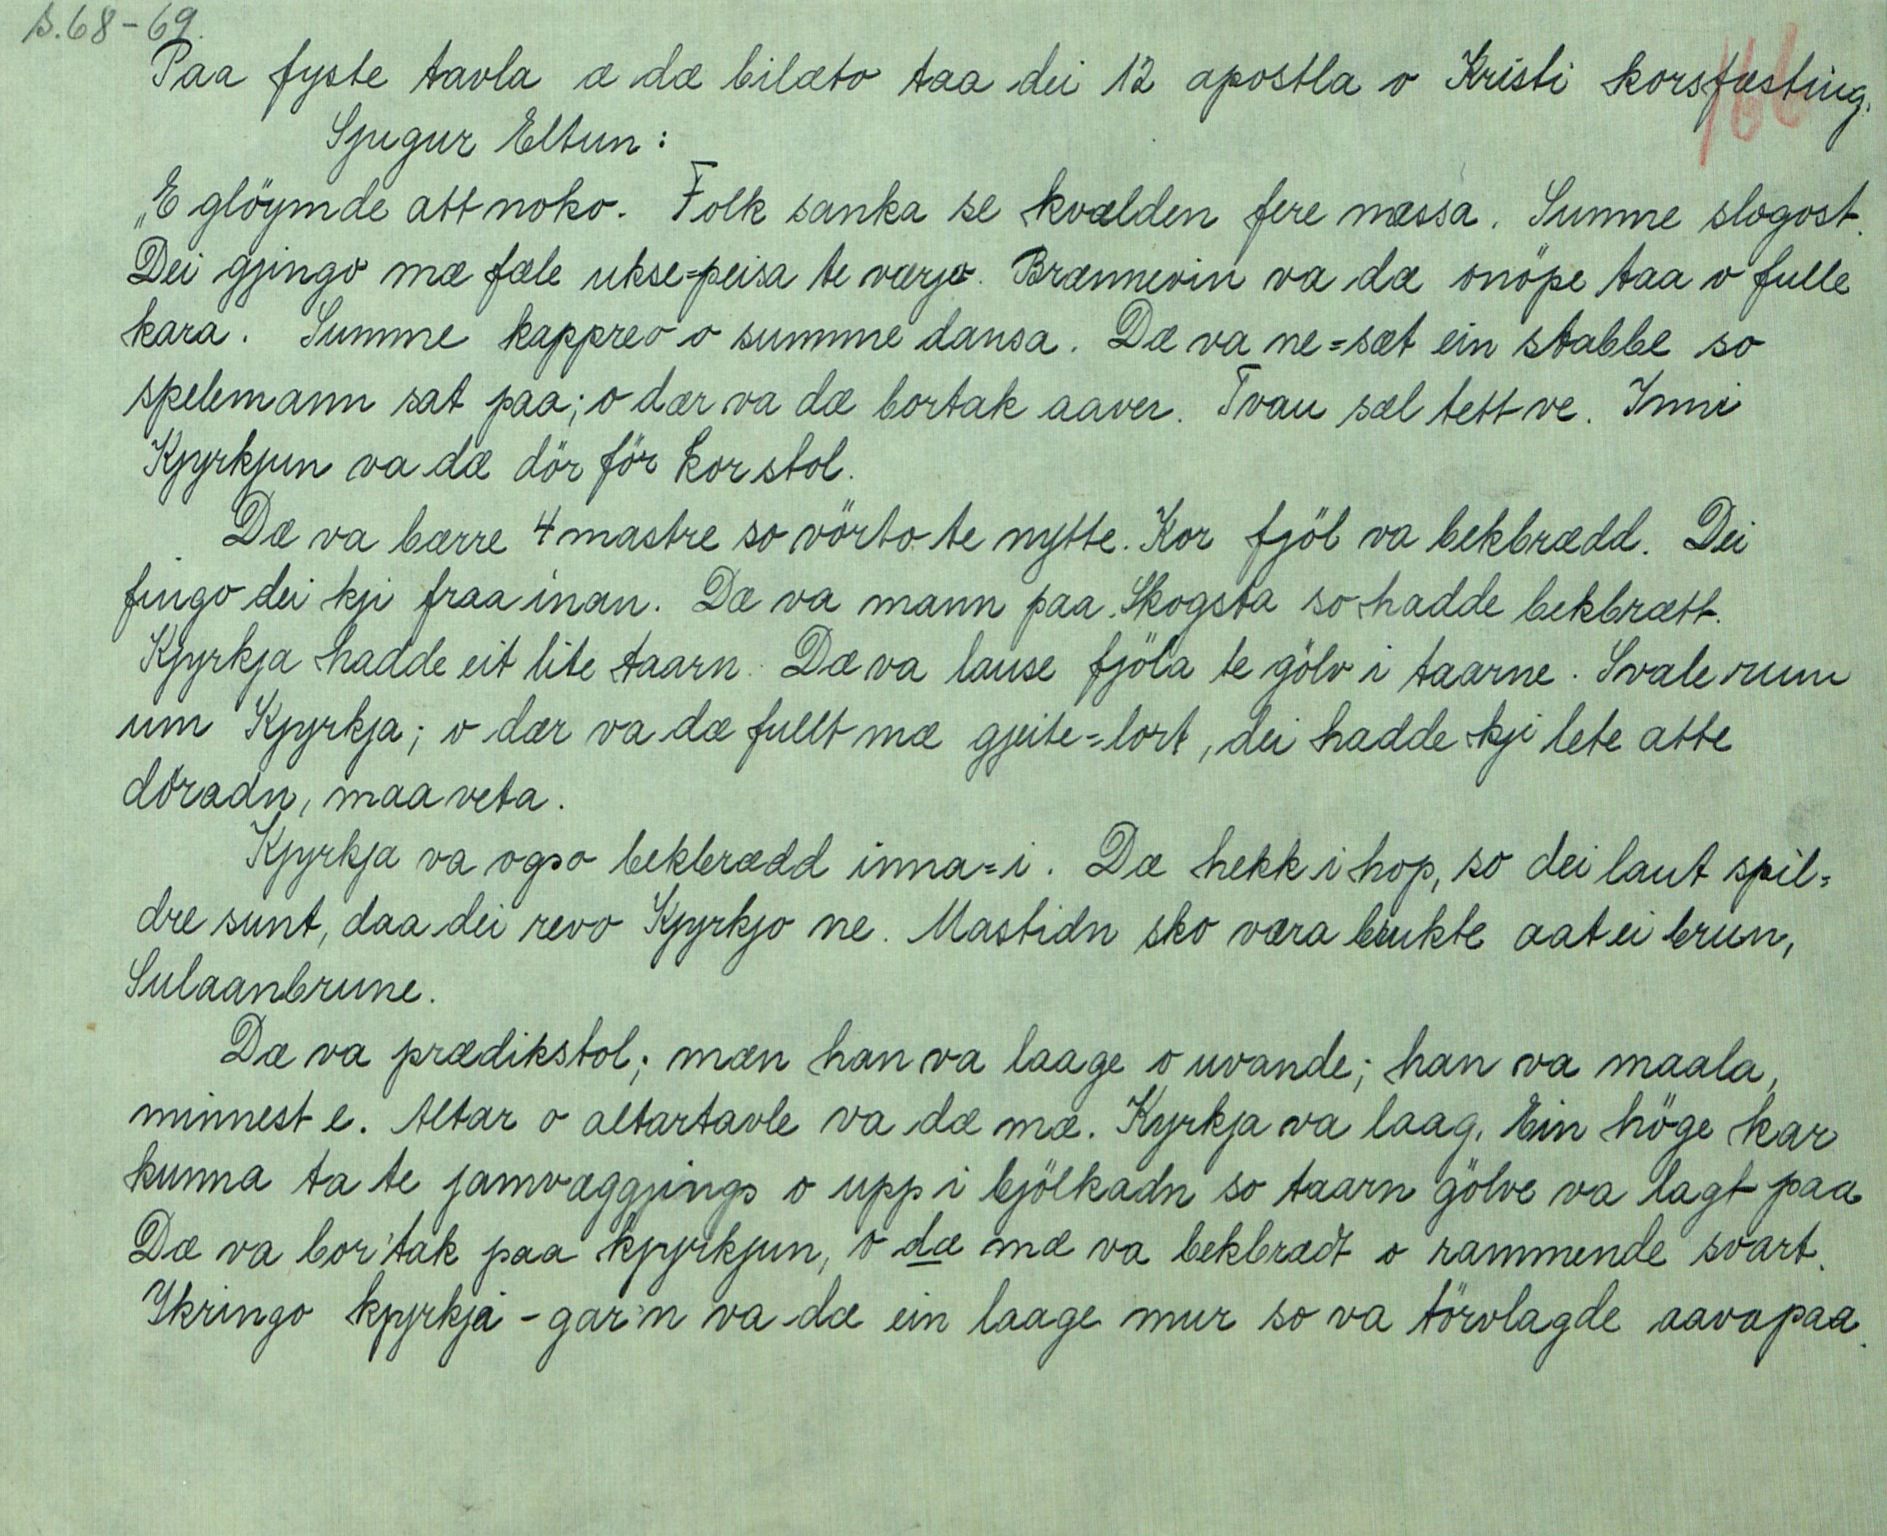 s.68-69.
166
Paa fyste tavla æ dæ bilæto taa dei 12 apostla o Kristi korsfæsting.
Sjugur Eltun:
„E glöymde att noko. Folk sanka se kvælden fere næssa. Summe slogost.
Dei gjingo mæ fæle ukse=peisa te værjo. Brænnevin va dæ onöpe taa o fulle
kara. Summe kappreo o summe dansa. Dæ va ne=sæt ein stabbe so
spelemann sat paa; o dær va dæ bortak aaver. Tvau sæl tett ve. Inni
Kjyrkjun va dæ dör för korstol.
Dæ va bærre 4 mastre so vörto te nytte. Kor fjöl va bekbrædd. Dei
fingo dei kji fraa inan. Dæ va mann paa Skogsta so hadde bekbrætt.
Kjyrkja hadde eit lite taarn. Dæ va lause fjöla te gölv i taarne. Svale rum
um Kjyrkja; o dær va dæ fullt mæ gjeite=lort, dei hadde kji lete atte
döradn, maa veta.
Kjyrkja va ogso bekbrædd inna=i. Dæ hekk i hop, so dei laut spil=
dre sunt, daa dei revo Kjyrkjo ne. Mastidn sko væra brukte aat ei brun,
Sulaanbrune.
Dæ va prædikstol; mæn han va laage o uvande; han va maala,
minnest e. Altar o altartavle va dæ mæ. Kyrkja va laag. Ein höge kar
kunna ta te jamvæggjings o upp i bjölkadn so taarn gölve va lagt paa
Dæ va bor'tak paa kjyrkjun, o dæ mæ va bekbrædt o rammende svart.
Ikringo kjyrkja - gar'n va dæ ein laage mur so va törvlagde aavapaa.